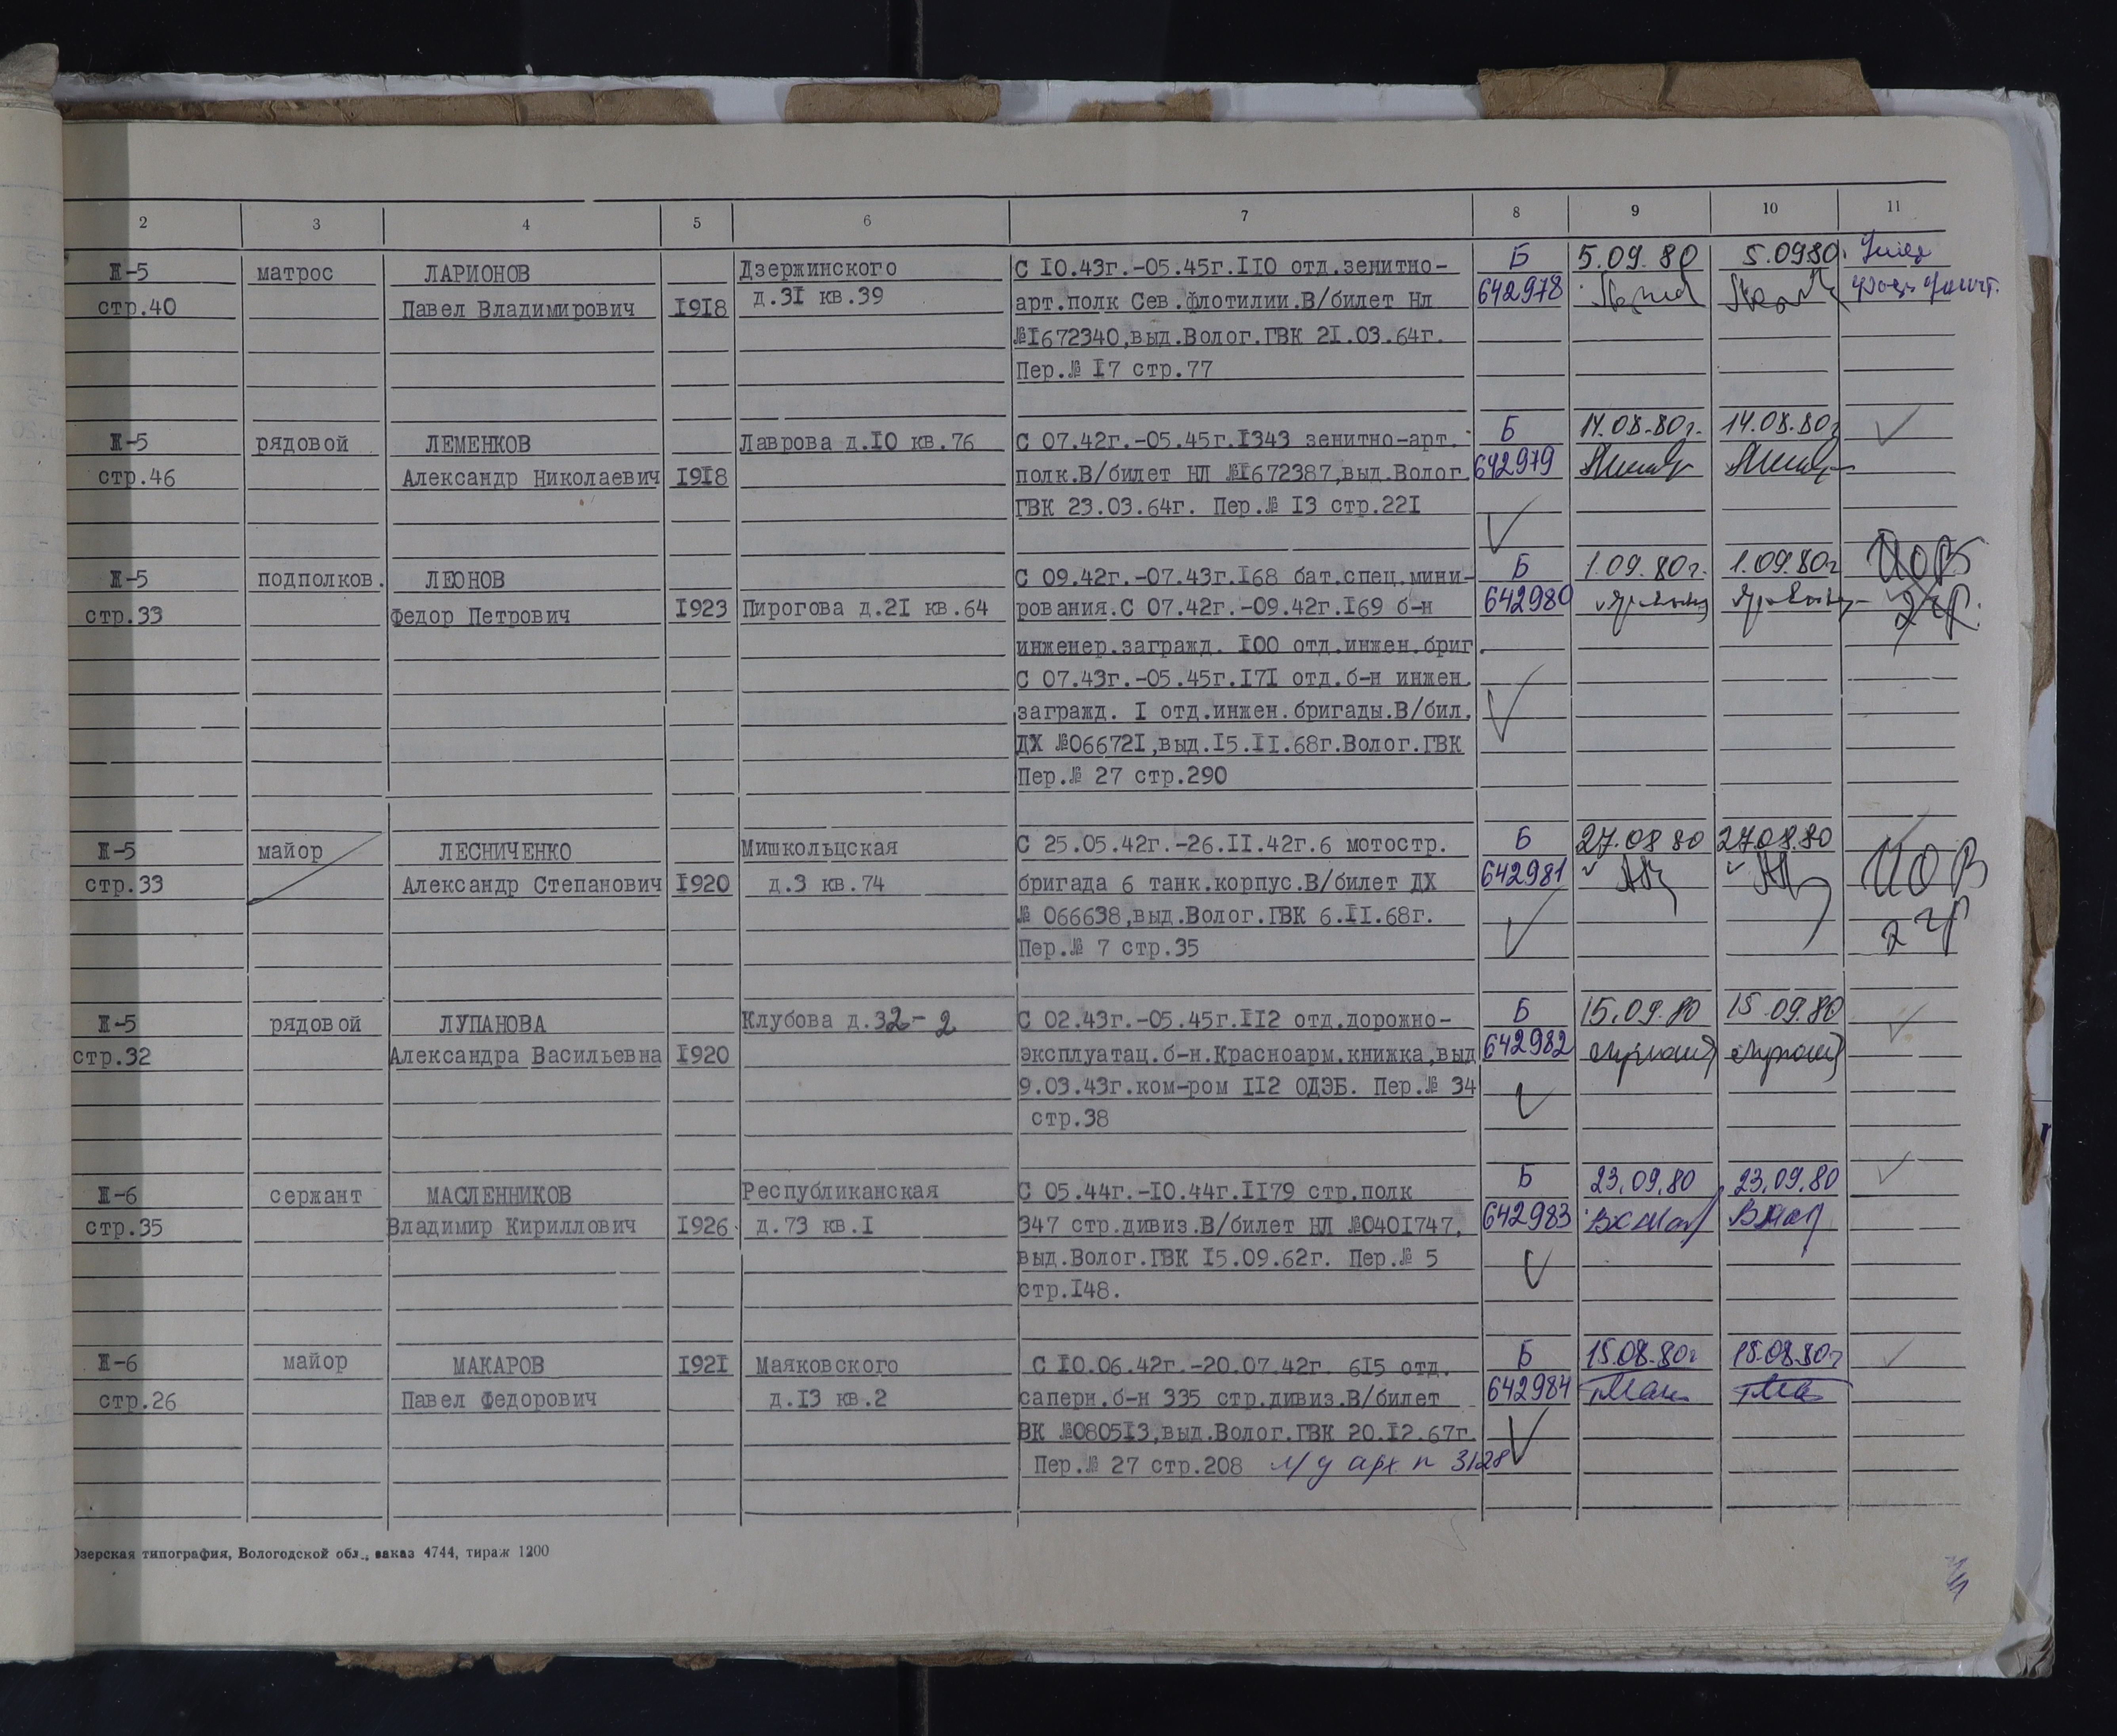 2 3 4 5 6 7 8 9 10 11
II-5 матрос ЛАРИОНОВ Дзержинского С I0.43г.-05.45г.II0 отд.зенитно- Б 5.09.80 5.0980.
стр.40 Павел Владимирович I9I8 д.3I кв.39 арт.полк Сев.флотилии.В/билет Нл 642978
№I672340,выд.Волог.ГВК 2I.03.64г.
Пер.№ I7 стр.77
II-5 рядовой ЛЕМЕНКОВ Лаврова д.I0 кв.76 С 07.42г.-05.45г.I343 зенитно-арт. Б 14.08.80г. 14.08.80г
стр.46 Александр Николаевич I9I8 полк.В/билет НЛ №I672387,выд.Волог. 642979
ГВК 23.03.64г. Пер.№ I3 стр.22I
II-5 подполков. ЛЕОНОВ С 09.42г.-07.43г.I68 бат.спец.мини- Б 1.09.80г. 1.09.80г ИОВ
стр.33 Федор Петрович I923 Пирогова д.2I кв.64 рования.С 07.42г.-09.42г.I69 б-н 642980 2 гр.
инженер.загражд. I00 отд.инжен.бриг.
С 07.43г.-05.45г.I7I отд.б-н инжен.
загражд. I отд.инжен.бригады.В/бил.
ДХ №06672I,выд.I5.II.68г.Волог.ГВК
Пер.№ 27 стр.290
II-5 майор ЛЕСНИЧЕНКО Мишкольцская С 25.05.42г.-26.II.42г.6 мотостр. Б 27.08 80 27.08.80 ИОВ
стр.33 Александр Степанович I920 д.3 кв.74 бригада 6 танк.корпус.В/билет ДХ 642981
№ 066638,выд.Волог.ГВК 6.II.68г. 2 гр
Пер.№ 7 стр.35
II-5 рядовой ЛУПАНОВА Клубова д.32-2 С 02.43г.-05.45г.II2 отд.дорожно- Б 15.09.80 15.09.80
стр.32 Александра Васильевна I920 эксплуатац.б-н.Красноарм.книжка,выд 642982
9.03.43г.ком-ром II2 ОДЭБ. Пер.№ 34
стр.38
II-6 сержант МАСЛЕННИКОВ Республиканская С 05.44г.-I0.44г.II79 стр.полк Б 23.09.80 23.09.80
стр.35 Владимир Кириллович I926 д.73 кв.I 347 стр.дивиз.В/билет НЛ №040I747, 642983
выд.Волог.ГВК I5.09.62г. Пер.№ 5
стр.I48.
II-6 майор МАКАРОВ I92I Маяковского С I0.06.42г.-20.07.42г. 6I5 отд. Б 15.08.80г 15.08.80г
стр.26 Павел Федорович д.I3 кв.2 саперн.б-н 335 стр.дивиз.В/билет 642984
ВК №0805I3,выд.Волог.ГВК 20.I2.67г.
Пер.№ 27 стр.208 л/д арх n 3128
Озерская типография, Вологодской обл., заказ 4744, тираж 1200